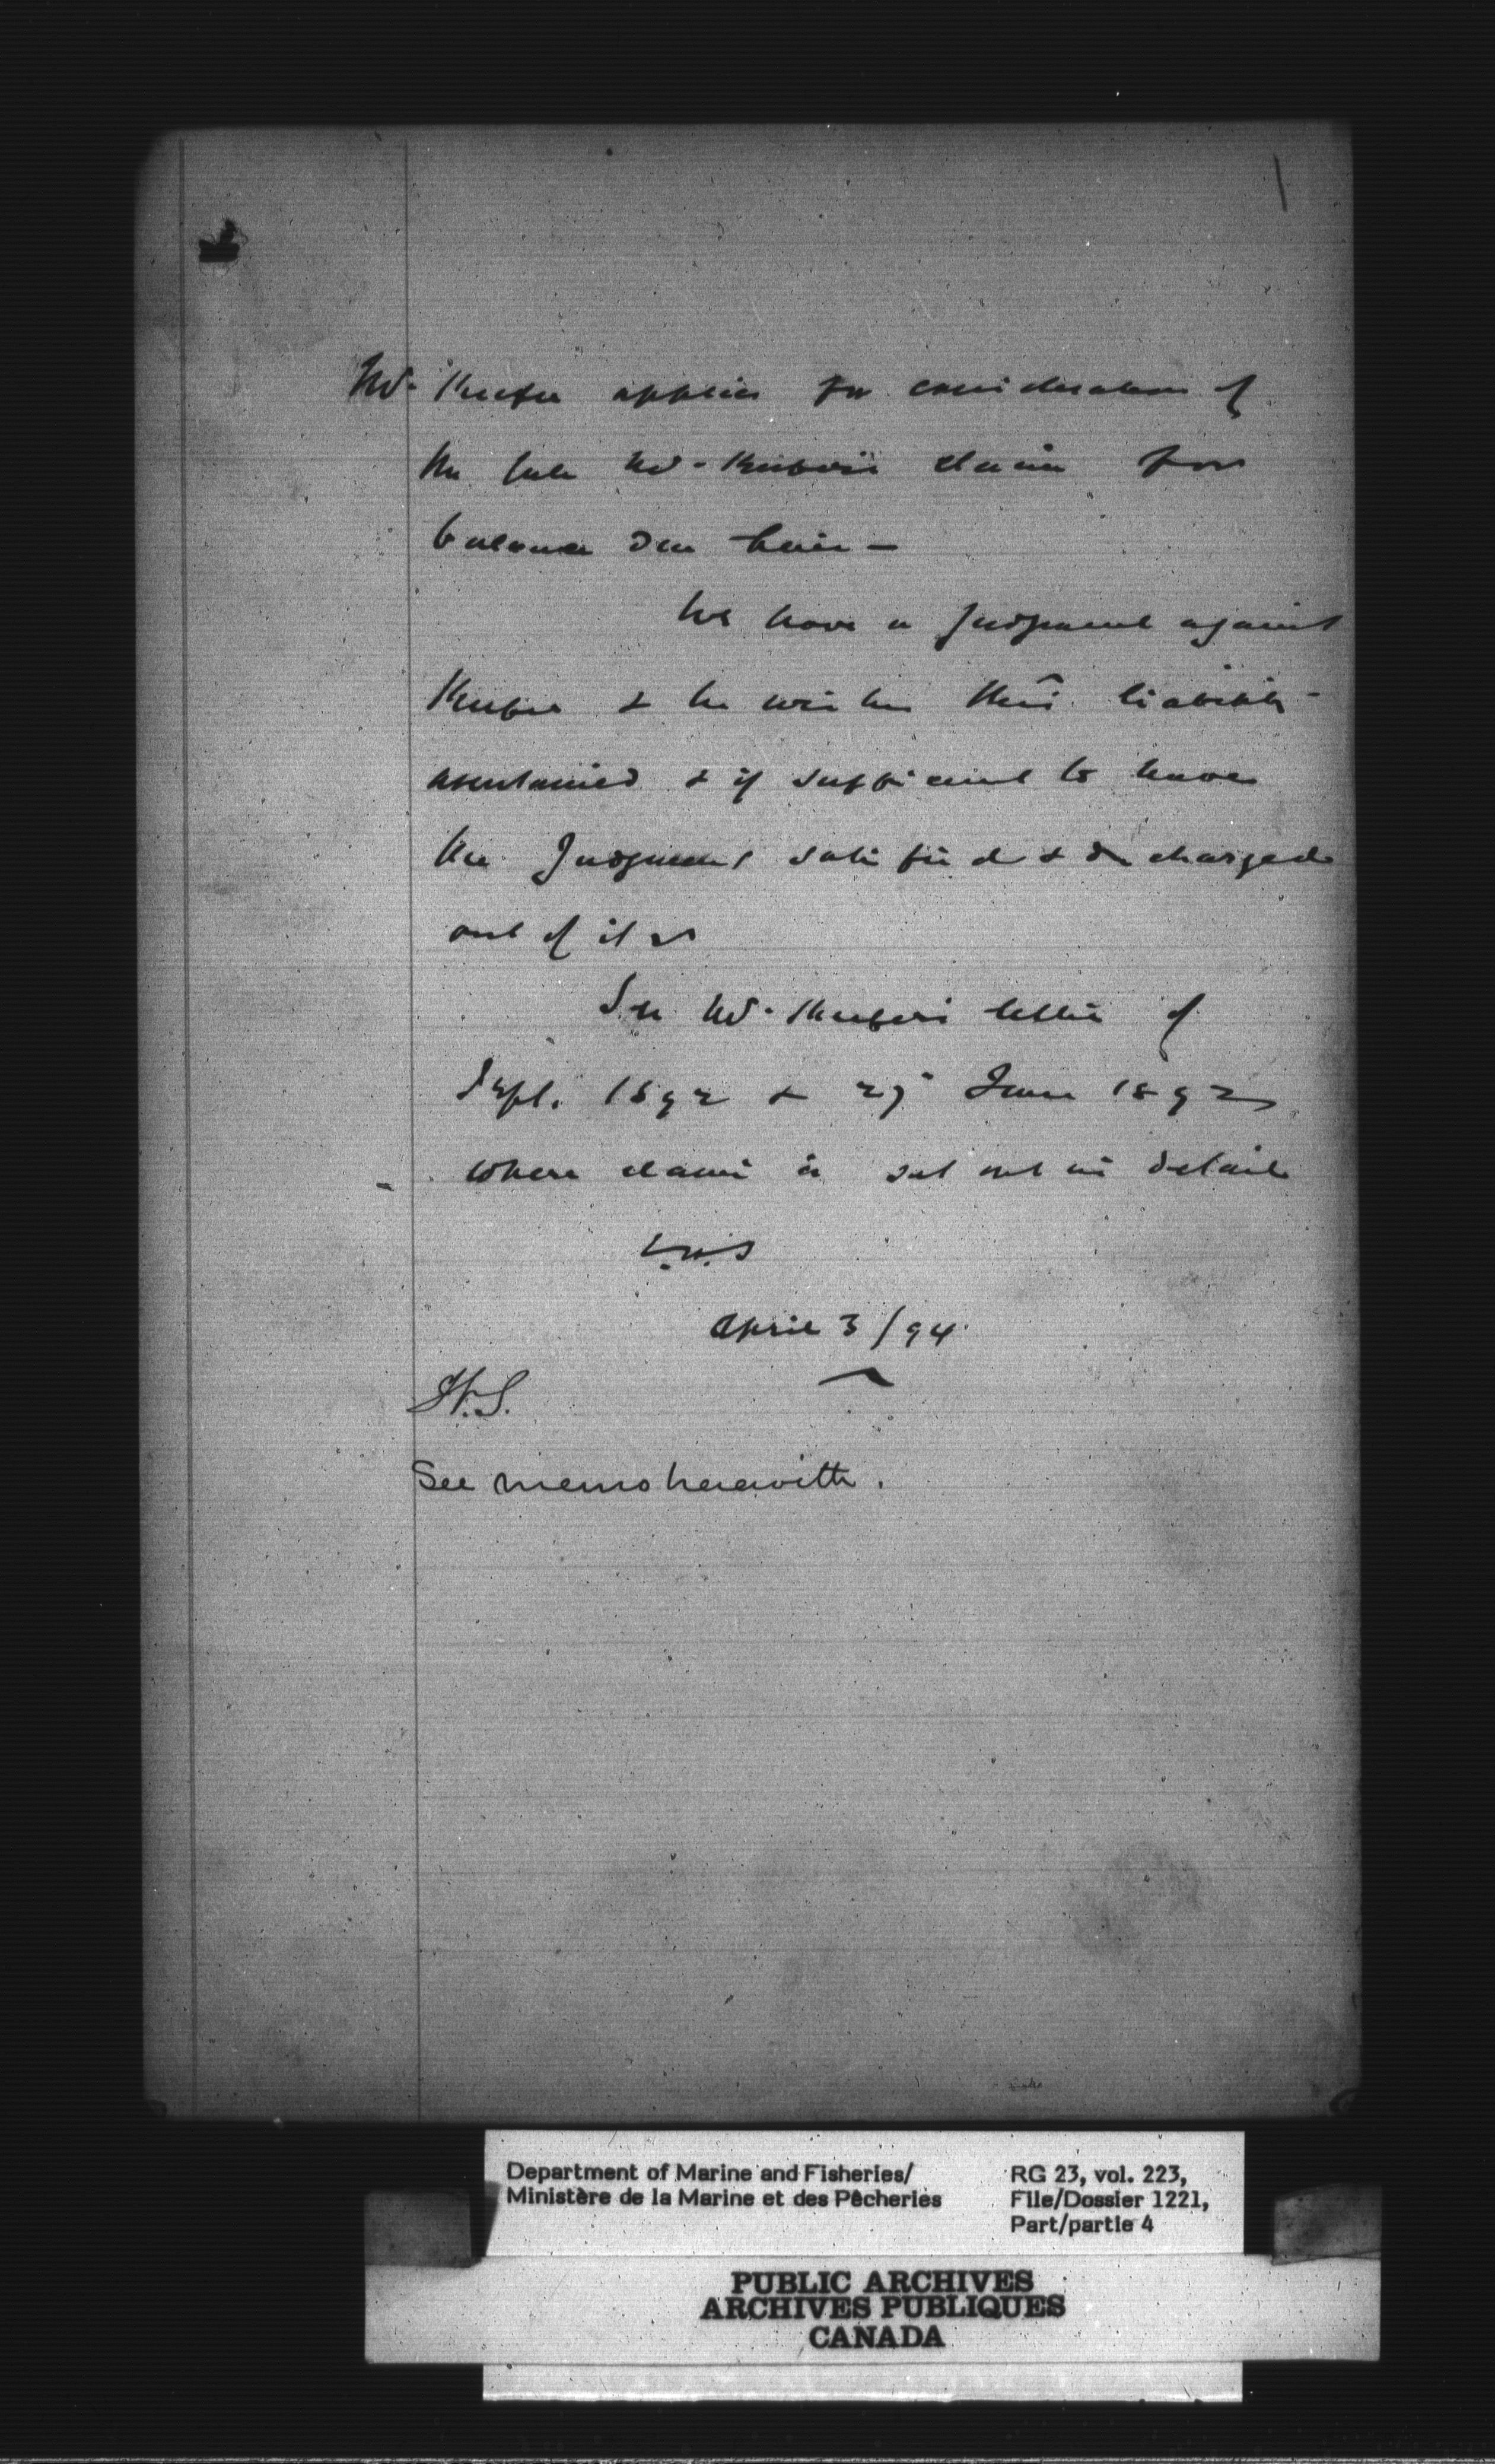 Mr. Keefer applies for consideration of
the late Mr. Keefer's claim for
balance due him —
We have a Judgment against
Keefer & he wishes this liability
ascertained & if sufficient to have
the Judgment satisfied & discharged
out of it
See Mr. Keefer's letter of
Sept. 1892 & 29 June 1892
where claim is set out in detail
April 3/94
H.S.
See memo herewith.
Department of Marine and Fisheries/
Ministère de la Marine et des Pêcheries
RG 23, vol. 223,
File/Dossier 1221,
Part/partie 4
PUBLIC ARCHIVES
ARCHIVES PUBLIQUES
CANADA